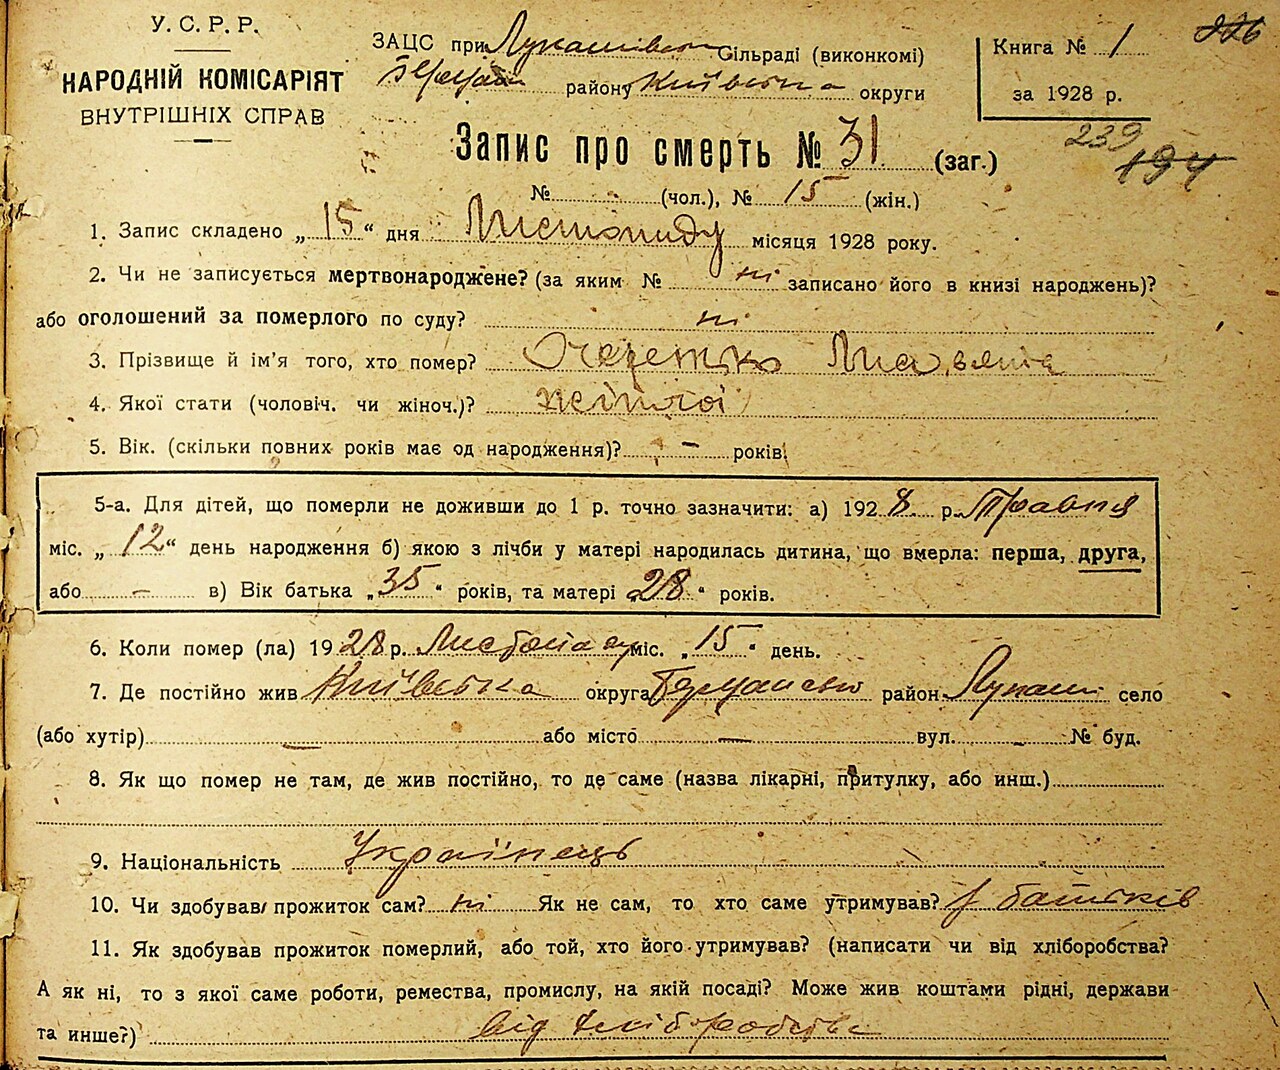 У. С. Р. Р.
НАРОДНІЙ КОМІСАРІЯТ
ВНУТРІШНІХ СПРАВ
ЗАЦС при Сільраді (виконкомі)
району Київська округи
Книга № 1
за 1928 р.
226
239
194
Запис про смерть № 31 (заг.)
№ (чол.), № 15 (жін.)
1. Запис складено „15“ дня Листопаду місяця 1928 року.
2. Чи не записується мертвонароджене? (за яким № ні записано його в книзі народжень)?
або оголошений за померлого по суду? ні
3. Прізвище й ім'я того, хто помер? Очеретько
4. Якої стати (чоловіч. чи жіноч.)? жіночої
5. Вік. (скільки повних років має од народження)? – років.
5-а. Для дітей, що померли не доживши до 1 р. точно зазначити: а) 1928 р. Травня
міс. „12“ день народження б) якою з лічби у матері народилась дитина, що вмерла: перша, друга,
або – в) Вік батька „35“ років, та матері „28“ років.
6. Коли помер (ла) 1928 р. Листопаду міс. „15“ день.
7. Де постійно жив Київська округа район Лукаші село
(або хутір) — або місто — вул. – № буд.
8. Як що помер не там, де жив постійно, то де саме (назва лікарні, притулку, або инш.)
9. Національність Українець
10. Чи здобував прожиток сам? ні Як не сам, то хто саме утримував? у батьків
11. Як здобував прожиток померлий, або той, хто його утримував? (написати чи від хліборобства?
А як ні, то з якої саме роботи, ремества, промислу, на якій посаді? Може жив коштами рідні, держави
та инше?) від хліборобства